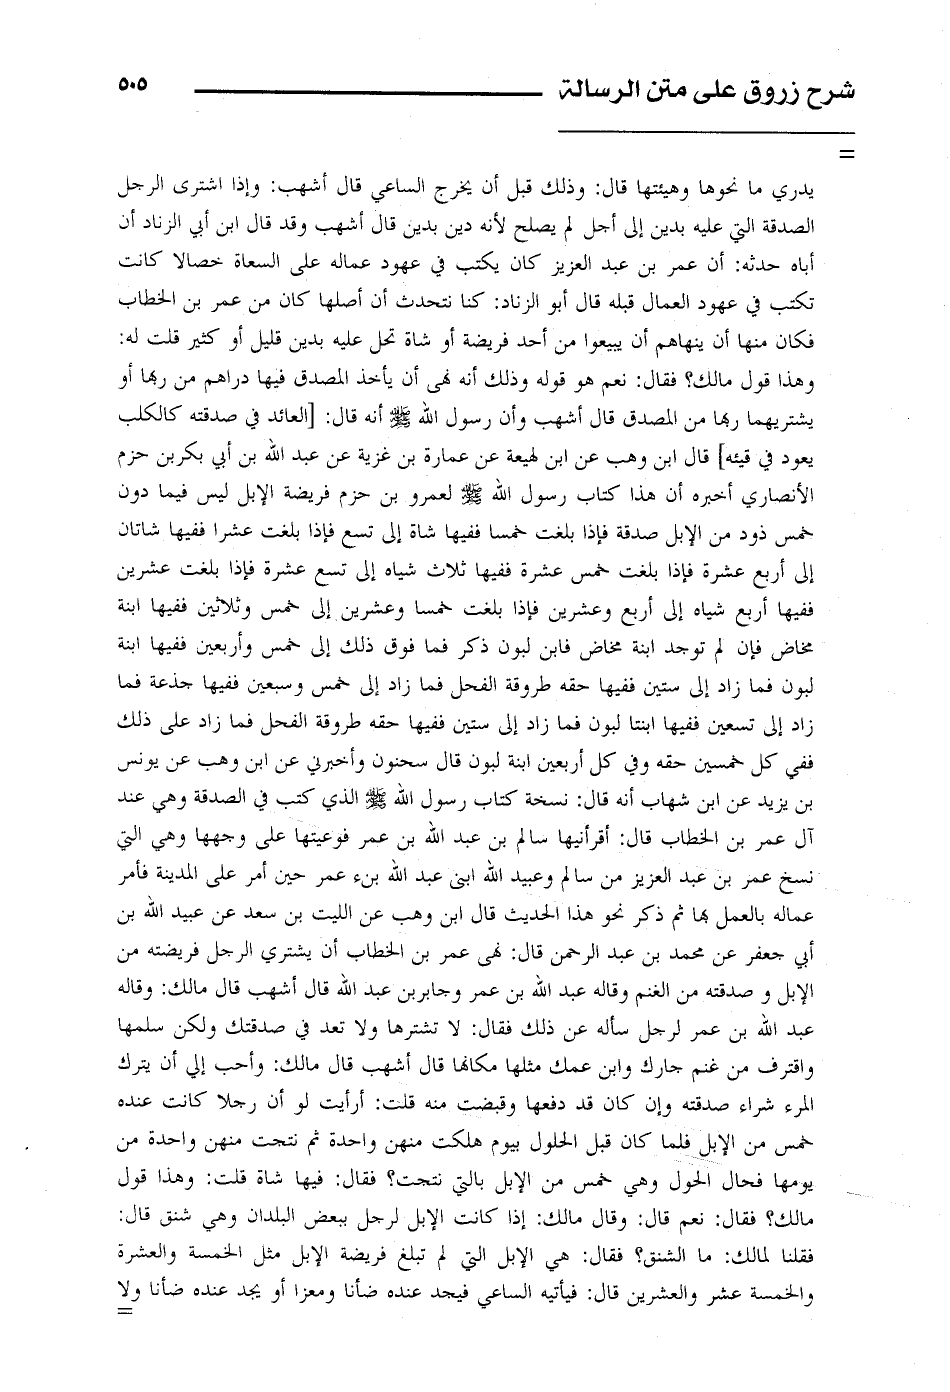 شرح زروق على متن الرسالة ٥٠٥
=
يدري ما نحوها وهيئتها قال: وذلك قبل أن يخرج الساعي قال أشهب: وإذا اشترى الرجل
الصدقة التي عليه بدين إلى أجل لم يصلح لأنه دين بدين قال أشهب وقد قال ابن أبي الزناد أن
أباه حدثه: أن عمر بن عبد العزيز كان يكتب في عهود عماله على السعاة خصالا كانت
تكتب في عهود العمال قبله قال أبو الزناد: كنا نتحدث أن أصلها كان من عمر بن الخطاب
فكان منها أن ينهاهم أن يبيعوا من أحد فريضة أو شاة تحل عليه بدين قليل أو كثير قلت له:
وهذا قول مالك؟ فقال: نعم هو قوله وذلك أنه نهى أن يأخذ المصدق فيها دراهم من ربها أو
يشتريهما ربها من المصدق قال أشهب وأن رسول الله ﷺ أنه قال: [العائد في صدقته كالكلب
يعود في قيئه] قال ابن وهب عن ابن لهيعة عن عمارة بن غزية عن عبد الله بن أبي بكربن حزم
الأنصاري أخبره أن هذا كتاب رسول الله ﷺ لعمرو بن حزم فريضة الإبل ليس فيما دون
خمس ذود من الإبل صدقة فإذا بلغت خمسا ففيها شاة إلى تسع فإذا بلغت عشرا ففيها شاتان
إلى أربع عشرة فإذا بلغت خمس عشرة ففيها ثلاث شياه إلى تسع عشرة فإذا بلغت عشرين
ففيها أربع شياه إلى أربع وعشرين فإذا بلغت خمسا وعشرين إلى خمس وثلاثين ففيها ابنة
مخاض فإن لم توجد ابنة مخاض فابن لبون ذكر فما فوق ذلك إلى خمس وأربعين ففيها ابنة
لبون فما زاد إلى ستين ففيها حقه طروقة الفحل فما زاد إلى خمس وسبعين ففيها جذعة فما
زاد إلى تسعين ففيها ابنتا لبون فما زاد إلى ستين ففيها حقه طروقة الفحل فما زاد على ذلك
ففي كل خمسين حقه وفي كل أربعين ابنة لبون قال سحنون وأخبرني عن ابن وهب عن يونس
بن يزيد عن ابن شهاب أنه قال: نسخة كتاب رسول الله ﷺ الذي كتب في الصدقة وهي عند
آل عمر بن الخطاب قال: أقرأنيها سالم بن عبد الله بن عمر فوعيتها على وجهها وهي التي
نسخ عمر بن عبد العزيز من سالم وعبيد الله ابنى عبد الله بنء عمر حين أمر على المدينة فأمر
عماله بالعمل بها ثم ذكر نحو هذا الحديث قال ابن وهب عن الليت بن سعد عن عبيد الله بن
أبي جعفر عن محمد بن عبد الرحمن قال: نهى عمر بن الخطاب أن يشتري الرجل فريضته من
الإبل و صدقته من الغنم وقاله عبد الله بن عمر وجابربن عبد الله قال أشهب قال مالك: وقاله
عبد الله بن عمر لرجل سأله عن ذلك فقال: لا تشترها ولا تعد في صدقتك ولكن سلمها
واقترف من غنم جارك وابن عمك مثلها مكانها قال أشهب قال مالك: وأحب إلي أن يترك
المرء شراء صدقته وإن كان قد دفعها وقبضت منه قلت: أرأيت لو أن رجلا كانت عنده
خمس من الإبل فلما كان قبل الحلول بيوم هلكت منهن واحدة ثم نتجت منهن واحدة من
يومها فحال الحول وهي خمس من الإبل بالتي نتجت؟ فقال: فيها شاة قلت: وهذا قول
مالك؟ فقال: نعم قال: وقال مالك: إذا كانت الإبل لرجل ببعض البلدان وهي شنق قال:
فقلنا لمالك: ما الشنق؟ فقال: هي الإبل التي لم تبلغ فريضة الإبل مثل الخمسة والعشرة
والخمسة عشر والعشرين قال: فيأتيه الساعي فيجد عنده ضأنا ومعزا أو يجد عنده ضأنا ولا
=